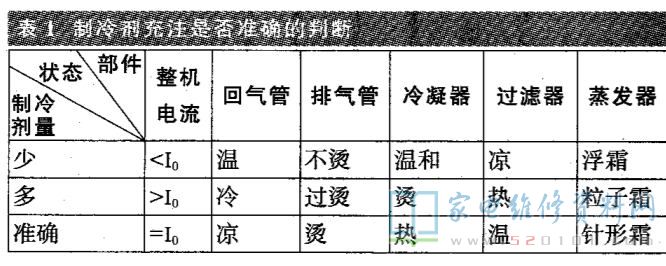 表1 制冷剂充注是否准确的判断
状态 部件 制冷剂量 整机电流 回气管 排气管 冷凝器 过滤器 蒸发器
少 <I₀ 温 不烫 温和 凉 浮霜
多 >I₀ 冷 过烫 烫 热 粒子霜
准确 =I₀ 凉 烫 热 温 针形霜
家电维修资料网